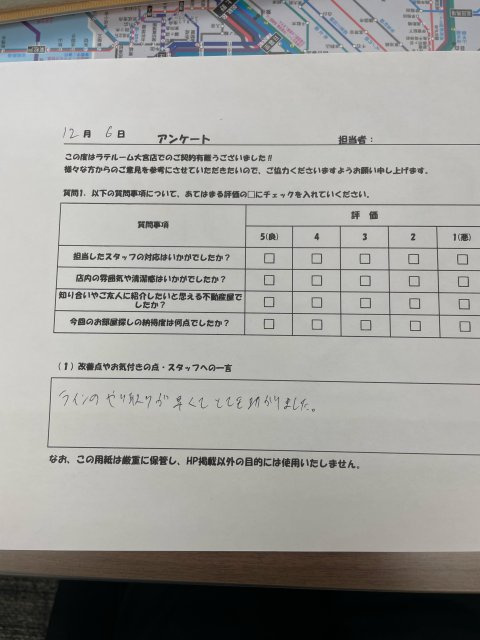 12月 6日 アンケート 担当者：
この度はラテルーム大宮店でのご契約有難うございました!!
様々な方からのご意見を参考にさせていただきたいので、ご協力くださいますようお願い申し上げます。
質問1. 以下の質問事項について、あてはまる評価の□にチェックを入れていください。
質問事項 評 価
5(良) 4 3 2 1(悪)
担当したスタッフの対応はいかがでしたか？ □ □ □ □ □
店内の雰囲気や清潔感はいかがでしたか？ □ □ □ □ □
知り合いやご友人に紹介したいと思える不動産屋で
したか？ □ □ □ □ □
今回のお部屋探しの納得度は何点でしたか？ □ □ □ □ □
(1) 改善点やお気付きの点・スタッフへの一言
ラインのやり取りが早くてとても助かりました。
なお、この用紙は厳重に保管し、HP掲載以外の目的には使用いたしません。